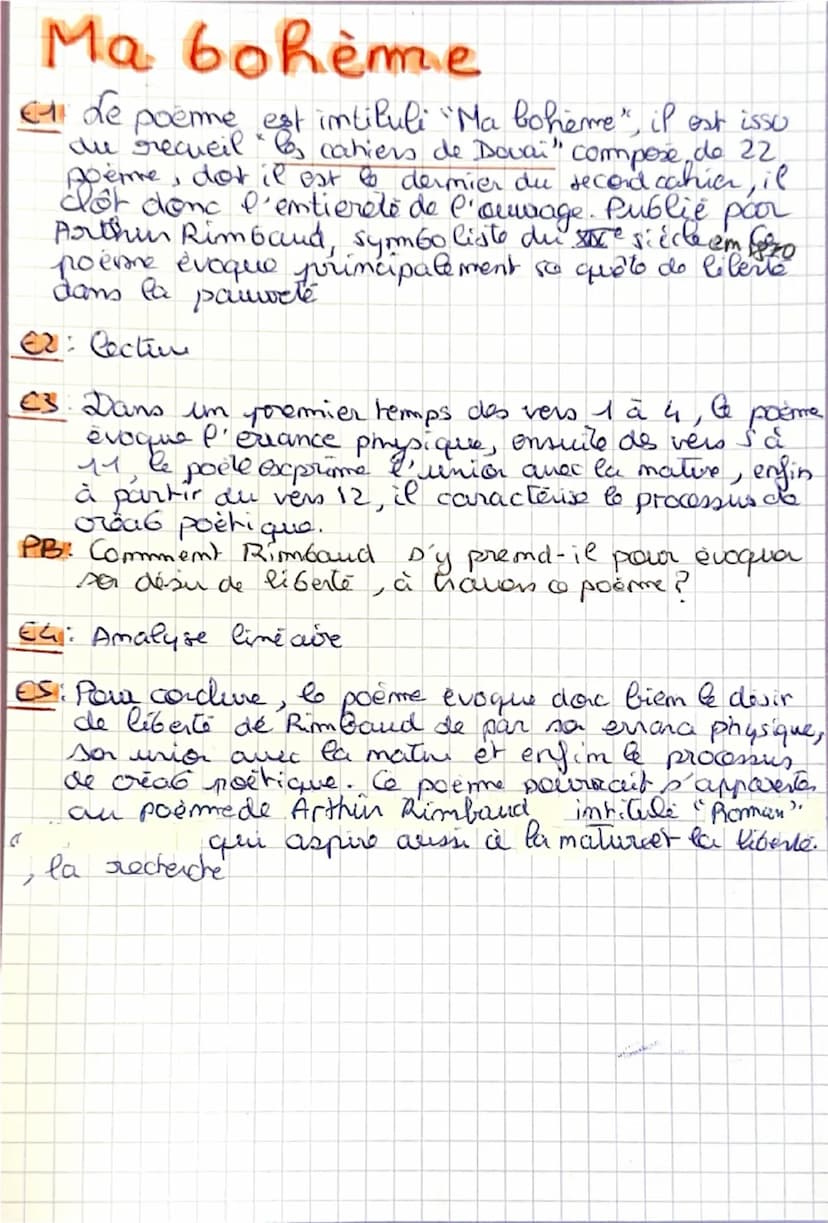 Ma bohème
E1 Le poème est intitulé "Ma bohème", il est isso
du recueil "les cahiers de Douai" composé, de 22
poème, dot il est le dernier du second cahier, il
clôt donc l'entiereté de l'ouvrage. Publié par
Arthur Rimbaud, symboliste du XIXe siècle en 1870 Ce
poème évoque principalement sa quête de liberté
dans la pauvreté
E2 : lecture
E3 : Dans un premier temps des vers 1 à 4, le poème
évoque l'errance physique, ensuite des vers 5 à
11, le poète exprime l'union avec la nature, enfin
à partir du vers 12, il caractérise le processus de
créa6 poétique.
PB : Comment Rimbaud s'y prend-il pour évoquer
son désir de liberté, à travers ce poème ?
E4 : Analyse linéaire
E5 : Pour conclure, le poème évoque donc bien le désir
de liberté de Rimbaud de par son errance physique,
son union avec la nature et enfin le processus
de créa6 poétique. Ce poème pourrait s'apparenter
au poème de Arthur Rimbaud intitulé "Roman"
qui aspire aussi à la nature et la liberté.
, la recherche